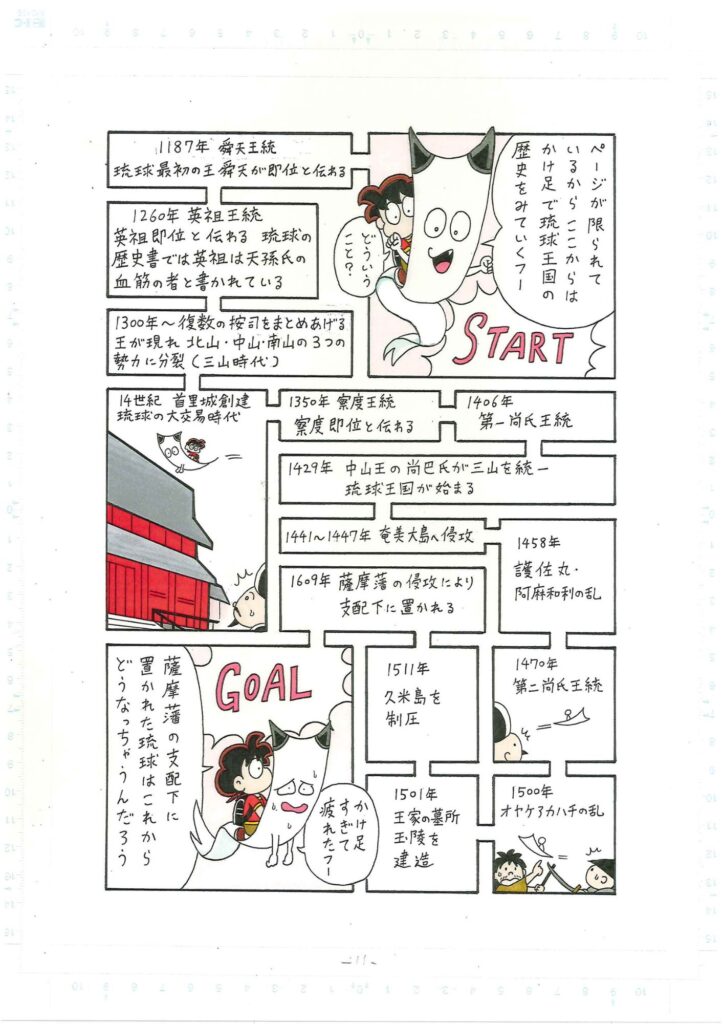 ページが限られて
いるから ここからは
かけ足で琉球王国の
歴史をみていくフー
どういう
こと？
START
1187年 舜天王統
琉球最初の王舜天が即位と伝わる
1260年 英祖王統
英祖即位と伝わる 琉球の
歴史書では英祖は天孫氏の
血筋の者と書かれている
1300年～複数の按司をまとめあげる
王が現れ 北山・中山・南山の3つの
勢力に分裂(三山時代)
14世紀 首里城創建
琉球の大交易時代
1350年 察度王統
察度即位と伝わる
1406年
第一尚氏王統
1429年 中山王の尚巴氏が三山を統一
琉球王国が始まる
1441～1447年 奄美大島へ侵攻
1458年
護佐丸・
阿麻和利の乱
1470年
第二尚氏王統
1500年
オヤケアカハチの乱
1501年
王家の墓所
玉陵を
建造
1511年
久米島を
制圧
1609年 薩摩藩の侵攻により
支配下に置かれる
GOAL
かけ足
すぎて
疲れたフー
薩摩藩の支配下に
置かれた琉球はこれから
どうなっちゃうんだろう
-11-